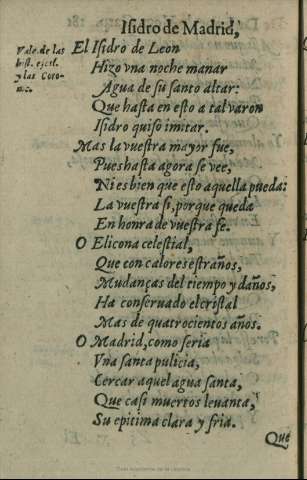 Isidro de Madrid,
Vale.de las
hist. eject.
y las Coro-
nic.
El Isidro de Leon
Hizo vna noche manar
Agua de su santo altar:
Que hasta en esto a tal varon
Isidro quiso imitar.
Mas la vuestra mayor fue,
Pues hasta agora se vee,
Ni es bien que esto aquella pueda:
La vuestra si, porque queda
En honra de vuestra fe.
O Elicona celestial,
Que con calores estraños,
Mudanças del tiempo y daños,
Ha conseruado el cristal
Mas de quatrocientos años.
O Madrid, como seria
Vna santa pulicia,
Cercar aquel agua santa,
Que casi muertos leuanta,
Su epitima clara y fria.
Que